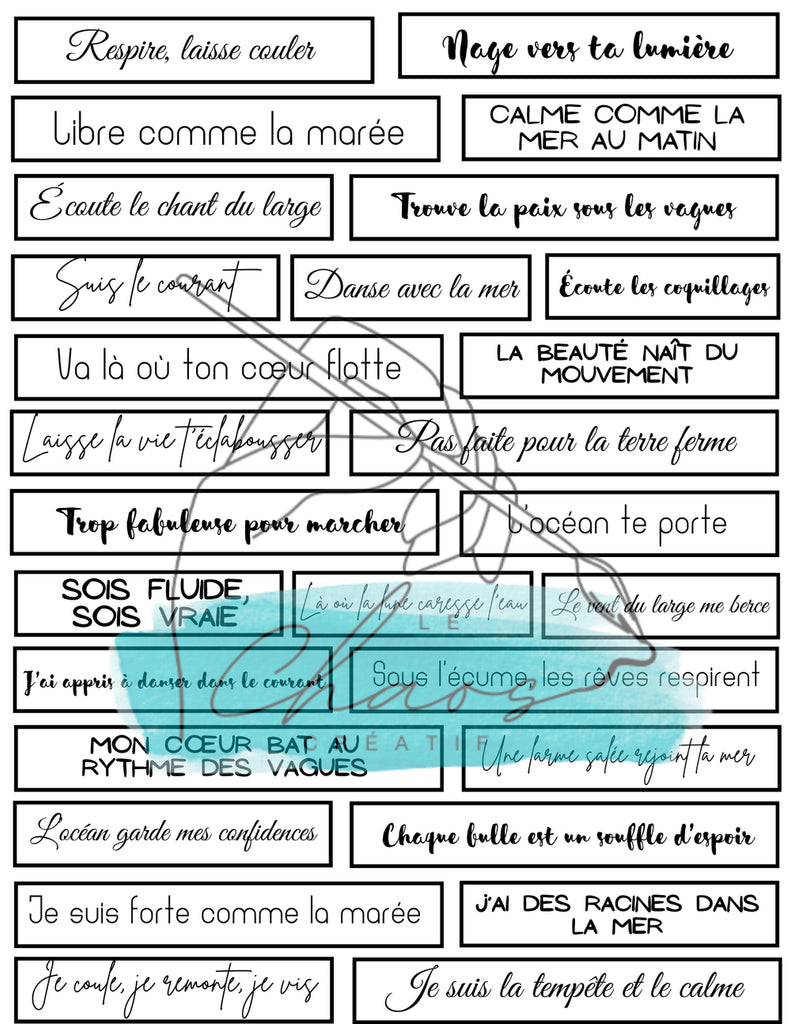 Respire, laisse couler
Nage vers ta lumière
Libre comme la marée
CALME COMME LA
MER AU MATIN
Écoute le chant du large
Trouve la paix sous les vagues
Suis le courant
Danse avec la mer
Écoute les coquillages
Va là où ton cœur flotte
LA BEAUTÉ NAÎT DU
MOUVEMENT
Laisse la vie t'éclabousser
Pas faite pour la terre ferme
Trop fabuleuse pour marcher
L'océan te porte
SOIS FLUIDE,
SOIS VRAIE
Là où la lune caresse l'eau
Le vent du large me berce
LE
Chaos
CRÉATIF
J'ai appris à danser dans le courant
Sous l'écume, les rêves respirent
MON CŒUR BAT AU
RYTHME DES VAGUES
Une larme salée rejoint la mer
L'océan garde mes confidences
Chaque bulle est un souffle d'espoir
Je suis forte comme la marée
J'AI DES RACINES DANS
LA MER
Je coule, je remonte, je vis
Je suis la tempête et le calme